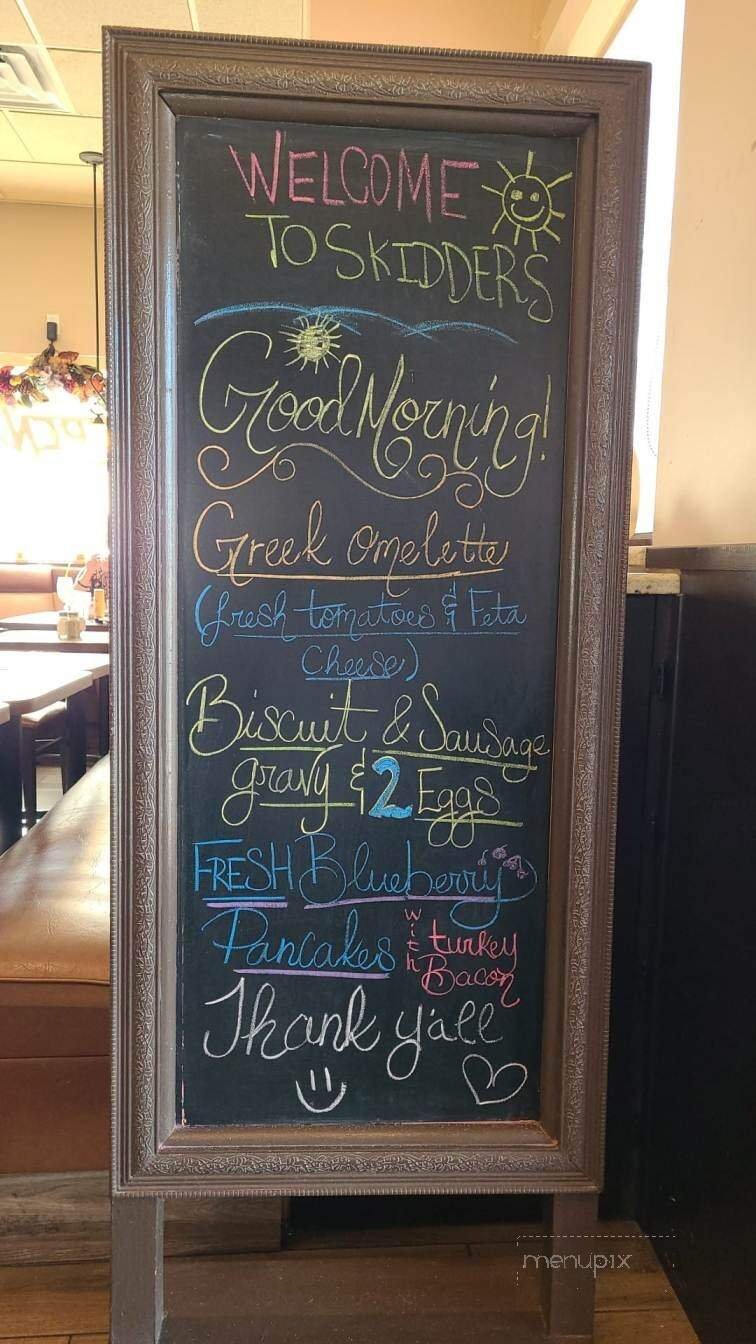 WELCOME
TO SKIDDERS
Good Morning!
Greek omelette
(fresh tomatoes & Feta
Cheese)
Biscuit & Sausage
gravy & 2 Eggs
FRESH Blueberry
Pancakes with turkey
Bacon
Thank y'all
menupix